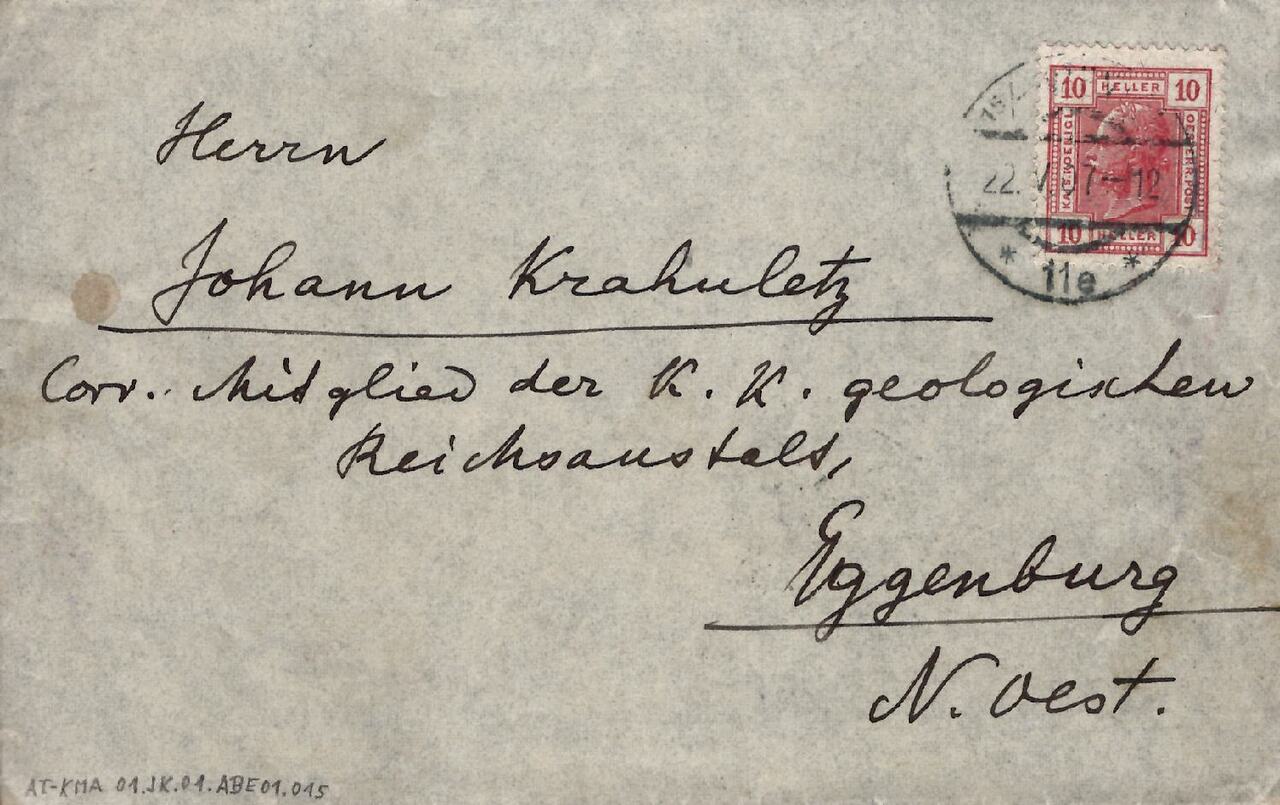 10 HELLER 10
KAIS. KOENIGL
OESTERR. POST
10 HELLER 10
22. V. 07-12
* 11e *
Herrn
Johann Krahuletz
Corr. Mitglied der K. K. geologischen
Reichsanstalt,
Eggenburg
N. Oest.
AT-KMA 01.JK.01.ABE01.015